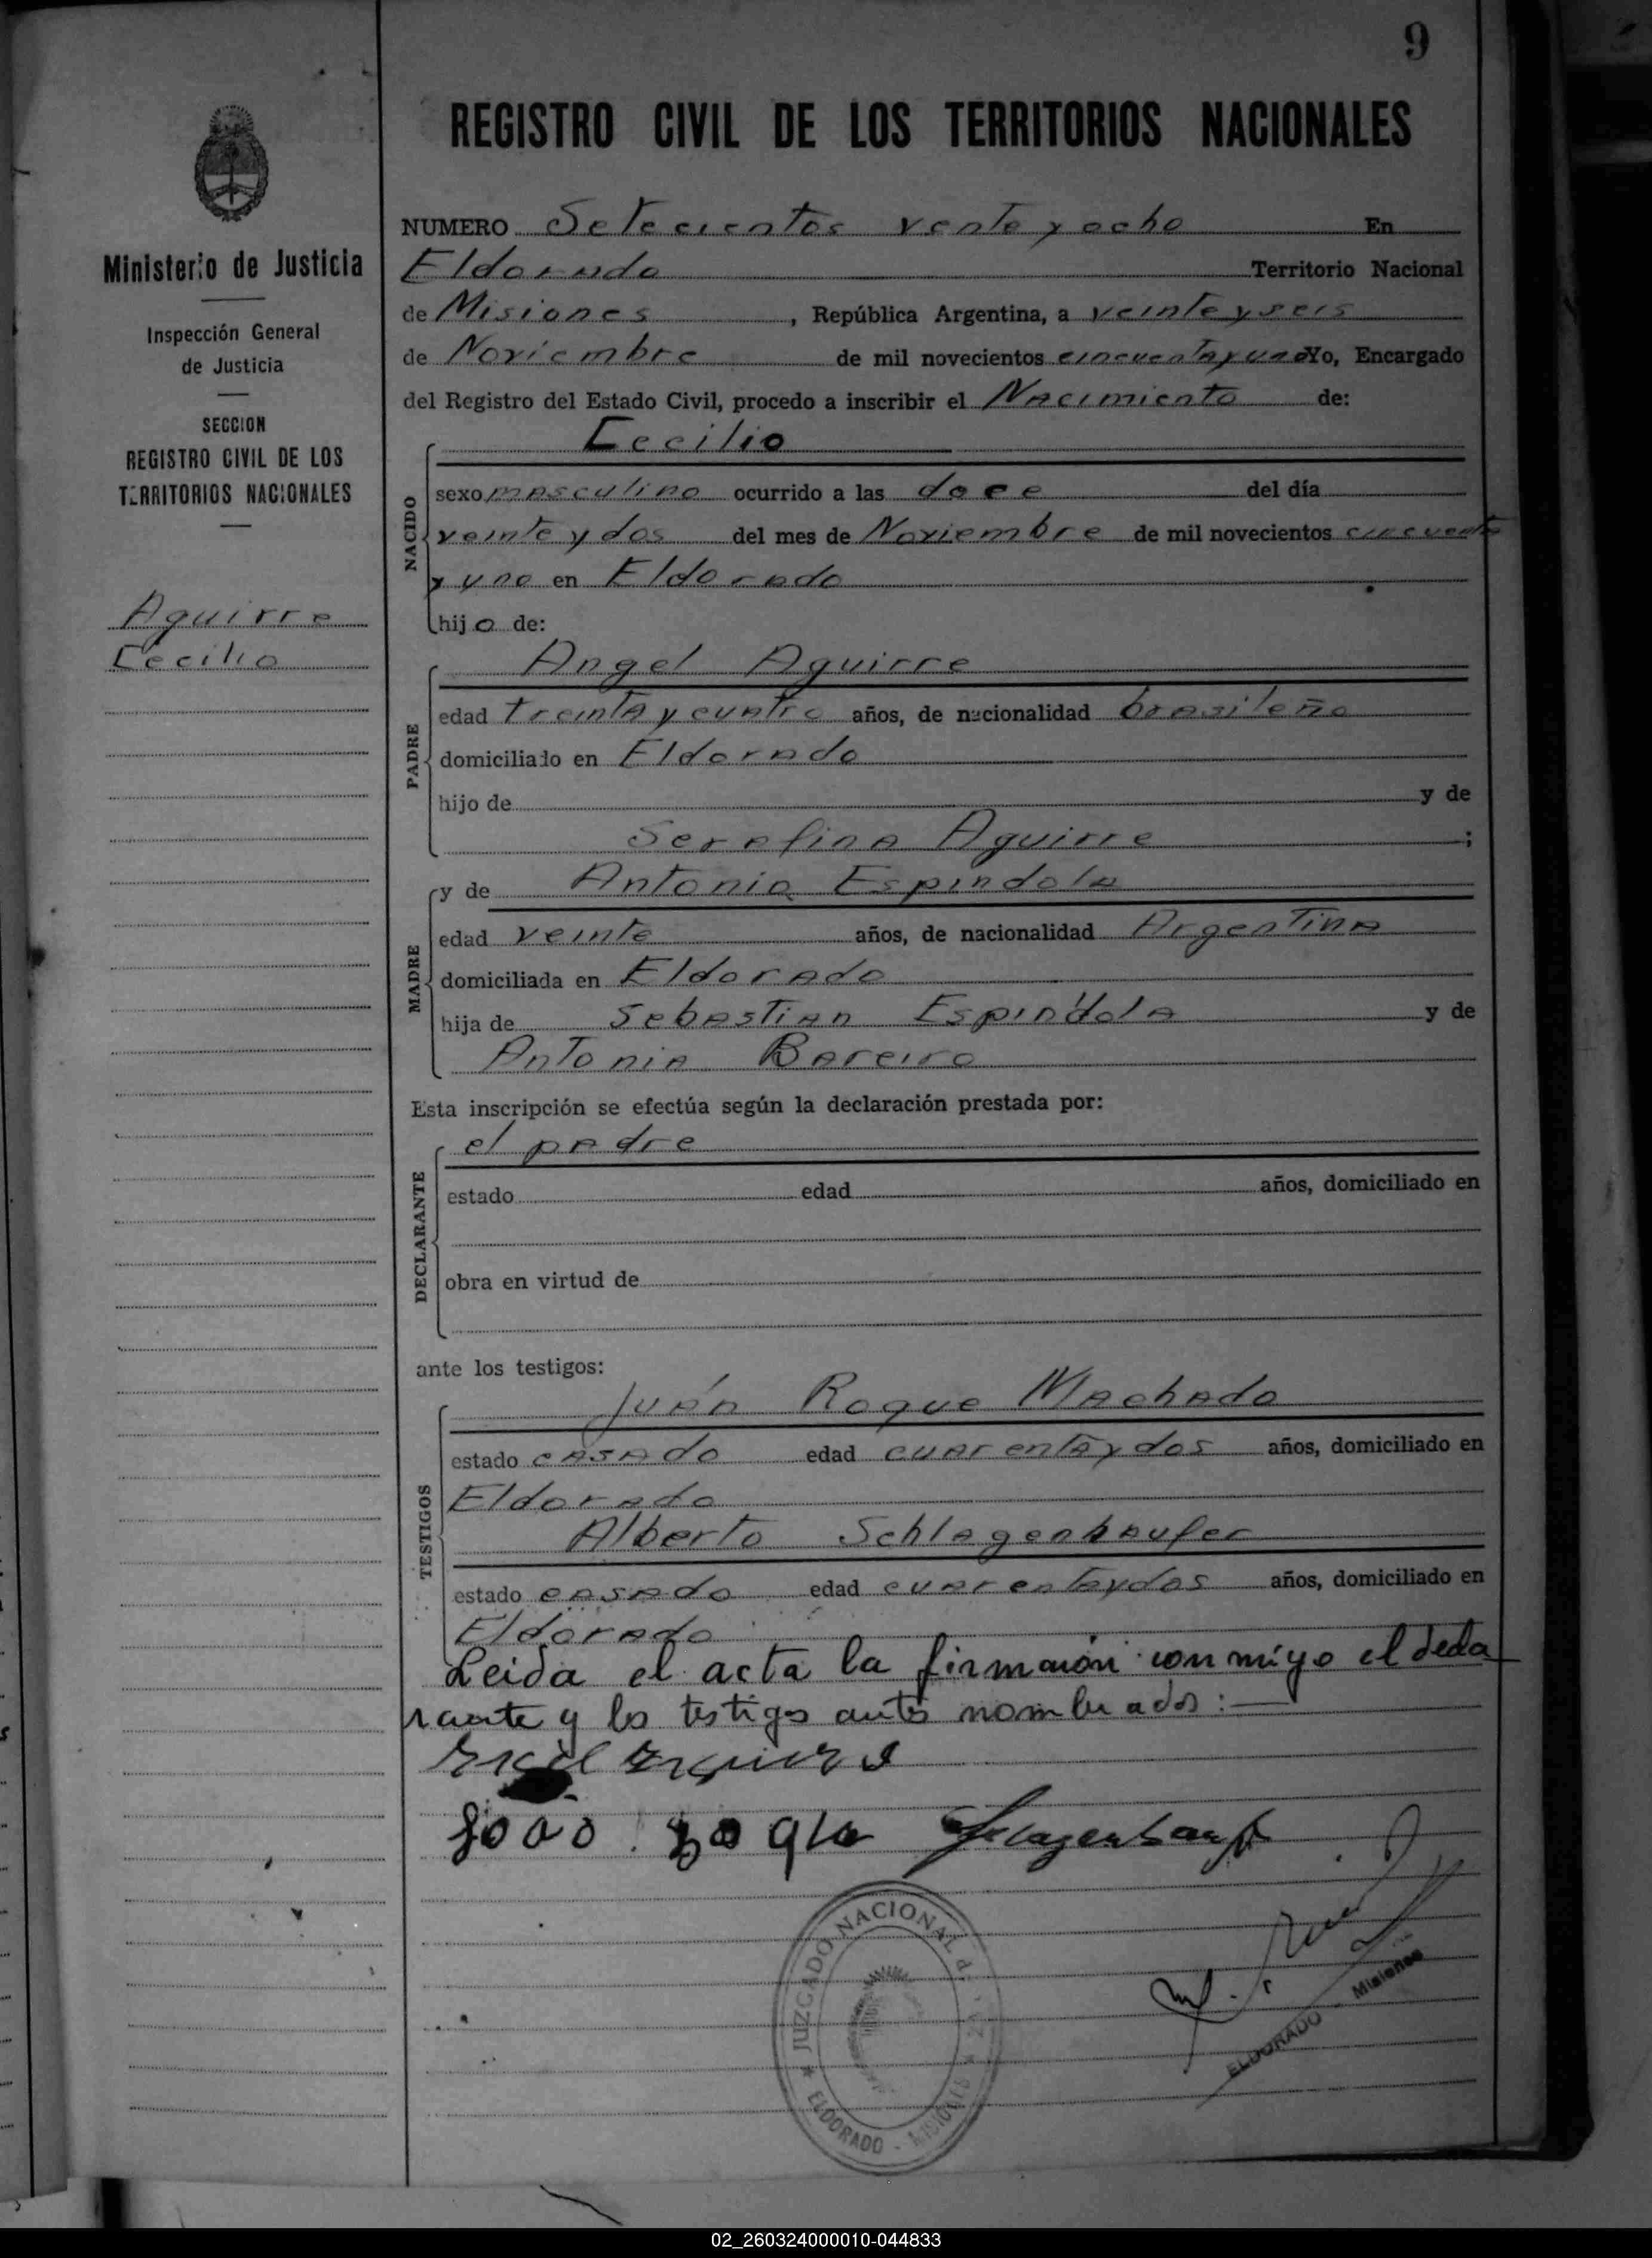 9
REGISTRO CIVIL DE LOS TERRITORIOS NACIONALES
Ministerio de Justicia
Inspección General
de Justicia
SECCION
REGISTRO CIVIL DE LOS
TERRITORIOS NACIONALES
Aguirre
Cecilio
NUMERO Setecientos vente y ocho En
Eldorado Territorio Nacional
de Misiones, República Argentina, a veinte y seis
de Noviembre de mil novecientos cincuenta y uno Yo, Encargado
del Registro del Estado Civil, procedo a inscribir el Nacimiento de:
NACIDO
Cecilio
sexo masculino ocurrido a las doce del día
veinte y dos del mes de Noviembre de mil novecientos cincuenta
y uno en Eldorado
hijo de:
PADRE
Angel Aguirre
edad treinta y cuatro años, de nacionalidad brasileño
domiciliado en Eldorado
hijo de y de
Serafina Aguirre ;
MADRE
y de Antonia Espindola
edad veinte años, de nacionalidad Argentina
domiciliada en Eldorado
hija de Sebastian Espíndola y de
Antonia Bareiro
Esta inscripción se efectúa según la declaración prestada por:
DECLARANTE
el padre
estado edad años, domiciliado en
obra en virtud de
ante los testigos:
TESTIGOS
Juán Roque Machado
estado casado edad cuarenta y dos años, domiciliado en
Eldorado
Alberto Schlagenhaufer
estado casado edad cuarenta y dos años, domiciliado en
Eldorado
Leida el acta la firmarón conmigo el decla
rante y los testigos antes nombrados:
JUZGADO NACIONAL de PAZ
ELDORADO - MISIONES
ELDORADO Misiones
02_260324000010-044833